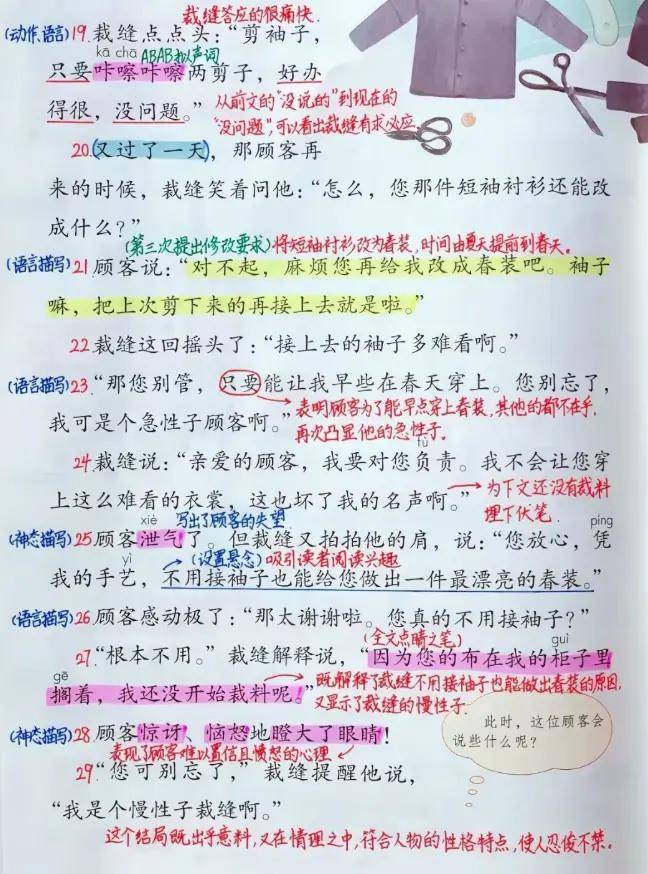 裁缝答应的很痛快.
(动作、语言)19.裁缝点点头：“剪袖子，
kā chā ABAB拟声词
只要咔嚓咔嚓两剪子，好办
得很，没问题。” 从前文的“没说的”到现在的
“没问题”，可以看出裁缝有求必应.
20.(又过了一天)，那顾客再
来的时候，裁缝笑着问他：“怎么，您那件短袖衬衫还能改
成什么？”
(第三次提出修改要求)将短袖衬衫改为春装，时间由夏天提前到春天。
(语言描写)21顾客说：“对不起，麻烦您再给我改成春装吧。袖子
嘛，把上次剪下来的再接上去就是啦。”
22裁缝这回摇头了：“接上去的袖子多难看啊。”
(语言描写)23.“那您别管，只要能让我早些在春天穿上。您别忘了，
我可是个急性子顾客啊。” 表明顾客为了能早点穿上春装，其他的都不在乎，
再次凸显他的急性子。
fù
24.裁缝说：“亲爱的顾客，我要对您负责。我不会让您穿
上这么难看的衣裳，这也坏了我的名声啊。” 为下文还没有裁料
埋下伏笔.
xiè 写出了顾客的失望 píng
(神态描写)25顾客泄气了。但裁缝又拍拍他的肩，说：“您放心，凭
yì (设置悬念)吸引读者阅读兴趣
我的手艺，不用接袖子也能给您做出一件最漂亮的春装。”
(语言描写)26.顾客感动极了：“那太谢谢啦。您真的不用接袖子？”
(全文点睛之笔) guì
27.“根本不用。”裁缝解释说，“因为您的布在我的柜子里
gē
搁着，我还没开始裁料呢。” 既解释了裁缝不用接袖子也能做出春装的原因，
又显示了裁缝的慢性子.
(神态描写)28.顾客惊讶、恼怒地瞪大了眼睛！
此时，这位顾客会
说些什么呢？
表现了顾客难以置信且愤怒的心理
29.“您可别忘了，”裁缝提醒他说，
“我是个慢性子裁缝啊。”
这个结局既出乎意料，又在情理之中，符合人物的性格特点，使人忍俊不禁。